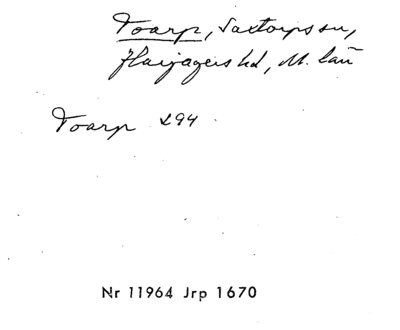 Toarp, Saxtorps sn,
Harjagers hd, M. län
Toarp 294
Nr 11964 Jrp 1670